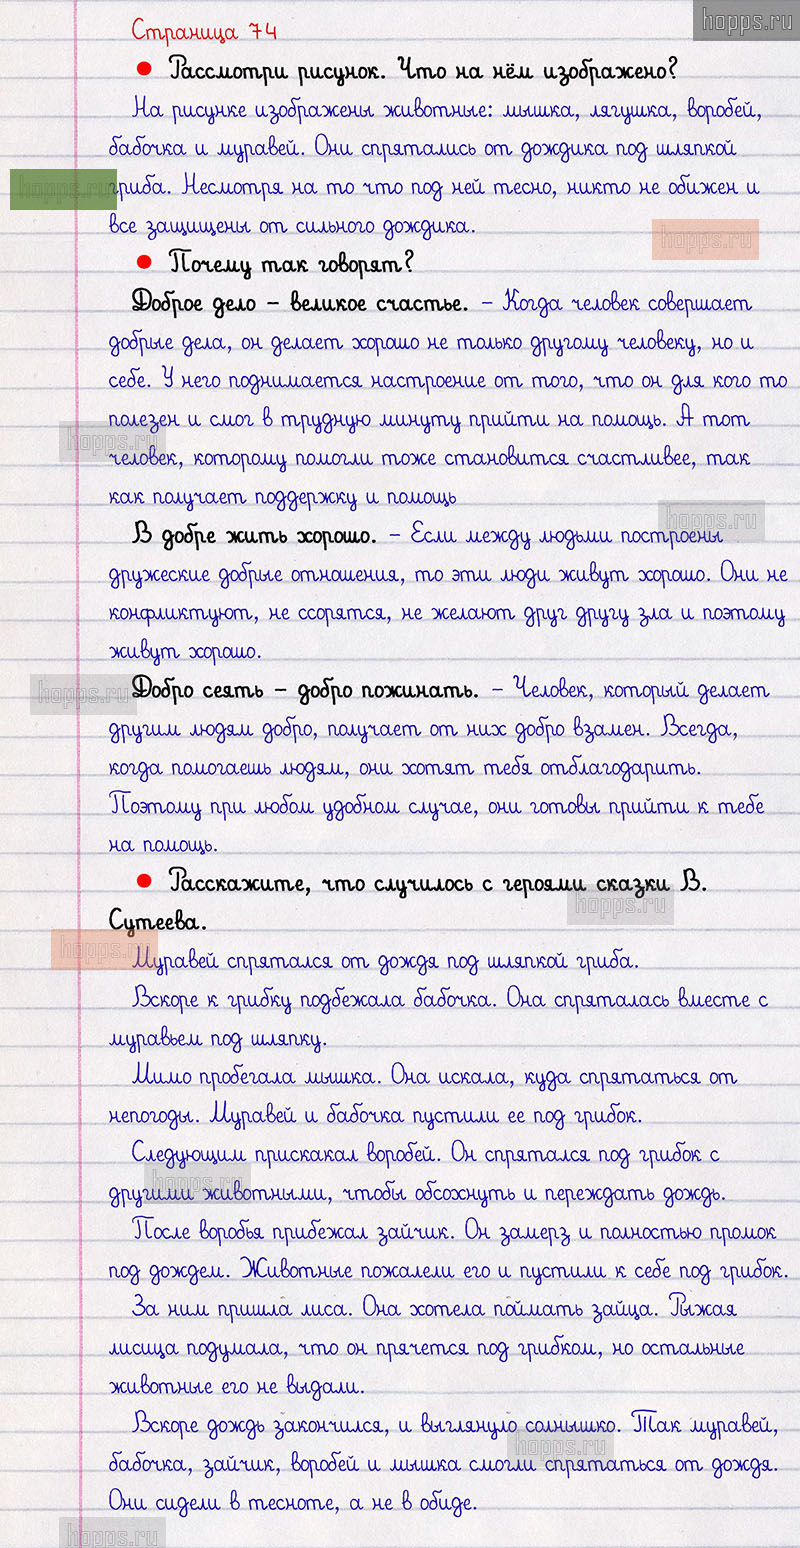 hopps.ru
Страница 74
Рассмотри рисунок. Что на нём изображено?
На рисунке изображены животные: мышка, лягушка, воробей,
бабочка и муравей. Они спрятались от дождика под шляпкой
hopps.ru
гриба. Несмотря на то что под ней тесно, никто не обижен и
все защищены от сильного дождика.
hopps.ru
Почему так говорят?
Доброе дело – великое счастье. – Когда человек совершает
добрые дела, он делает хорошо не только другому человеку, но и
себе. У него поднимается настроение от того, что он для кого то
полезен и смог в трудную минуту прийти на помощь. А тот
hopps.ru
человек, которому помогли тоже становится счастливее, так
как получает поддержку и помощь
hopps.ru
В добре жить хорошо. – Если между людьми построены
дружеские добрые отношения, то эти люди живут хорошо. Они не
конфликтуют, не ссорятся, не желают друг другу зла и поэтому
живут хорошо.
hopps.ru
Добро сеять – добро пожинать. – Человек, который делает
другим людям добро, получает от них добро взамен. Всегда,
когда помогаешь людям, они хотят тебя отблагодарить.
Поэтому при любом удобном случае, они готовы прийти к тебе
на помощь.
Расскажите, что случилось с героями сказки В.
hopps.ru
Сутеева.
hopps.ru
Муравей спрятался от дождя под шляпкой гриба.
Вскоре к грибку подбежала бабочка. Она спряталась вместе с
муравьем под шляпку.
Мимо пробегала мышка. Она искала, куда спрятаться от
непогоды. Муравей и бабочка пустили ее под грибок.
Следующим прискакал воробей. Он спрятался под грибок с
hopps.ru
другими животными, чтобы обсохнуть и переждать дождь.
После воробья прибежал зайчик. Он замерз и полностью промок
под дождем. Животные пожалели его и пустили к себе под грибок.
За ним пришла лиса. Она хотела поймать зайца. Рыжая
лисица подумала, что он прячется под грибком, но остальные
животные его не выдали.
Вскоре дождь закончился, и выглянуло солнышко. Так муравей,
hopps.ru
бабочка, зайчик, воробей и мышка смогли спрятаться от дождя.
Они сидели в тесноте, а не в обиде.
hopps.ru